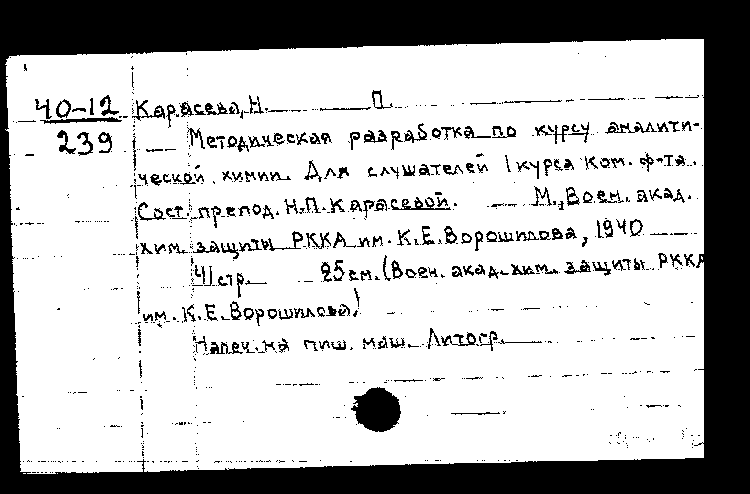 40-12
239
Карасева, Н. П.
Методическая разработка по курсу аналити-
ческой химии. Для слушателей I курса ком. ф-та.
Сост. препод. Н.П. Карасевой. М., Воен. акад.
хим. защиты РККА им. К.Е. Ворошилова, 1940
41 стр. 25 см. (Воен. акад. хим. защиты РККА
им. К.Е. Ворошилова)
Напеч. на пиш. маш. Литогр.